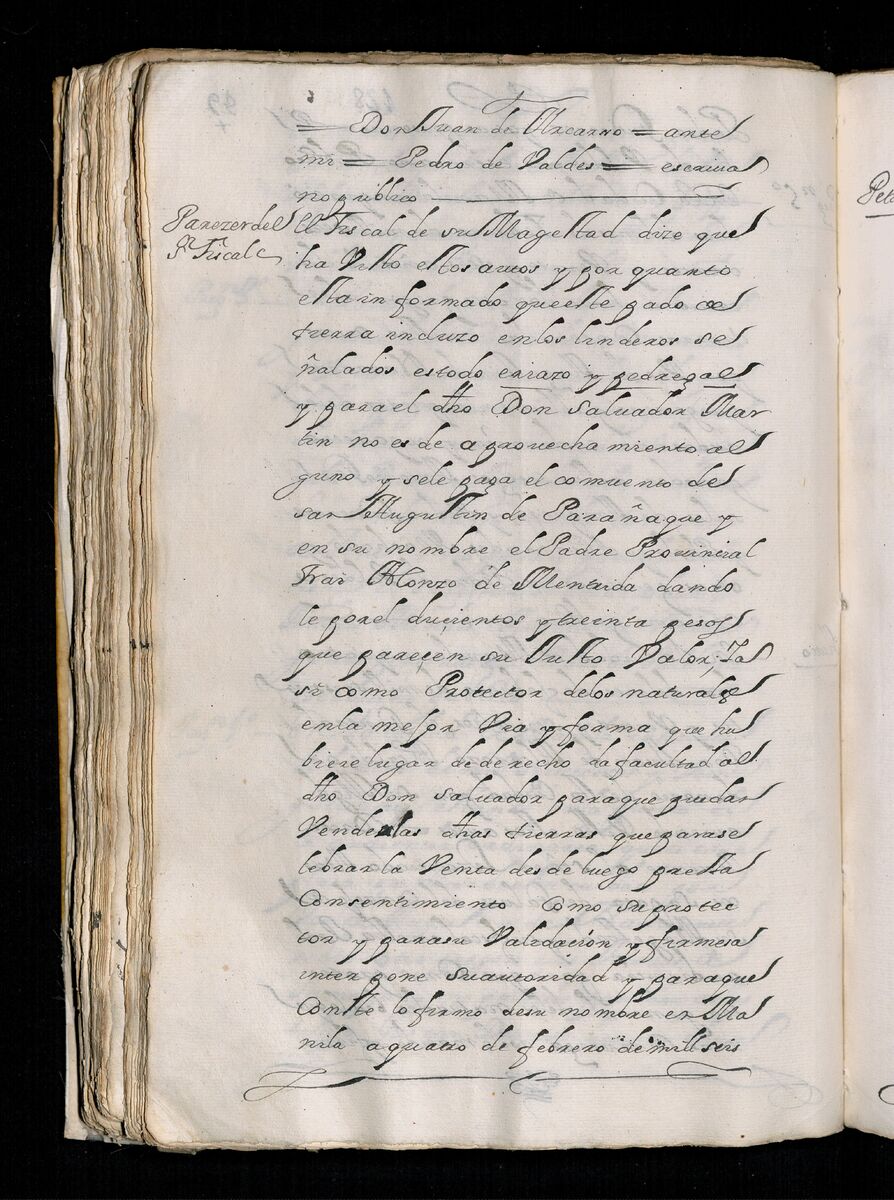 = Don Juan de Alzarro = ante
mi = Pedro de Valdes = escriua
no publico
Parezer del
Sr. Fiscal
El Fiscal de su Magestad dize que
ha Visto estos autos y por quanto
esta informado que este pedaço de
tierra incluzo en los linderos se
ñalados es todo eriazo y pedregal
y para el dho Don Saluador Mar
tin no es de aprovechamiento al
guno y se le paga el comuento de
san Augustin de Parañaque y
en su nombre el Padre Provincial
Frai Alonzo de Mentrida dando
le por el ducientos y treinta pesos
que pareçen su Justo Valor; Ja
si como Protector de los naturales
en la mejor Via y forma que hu
biere lugar de derecho da facultad al
dho Don Saluador para que puedar
Vender las dhas tierras que para se
lebrar la Venta desde luego presta
Consentimiento como su protec
tor y para su Validación y firmesa
inter pone su autoridad y para que
Conste lo firmo de su nombre en Ma
nila a quatro de febrero de mill seis